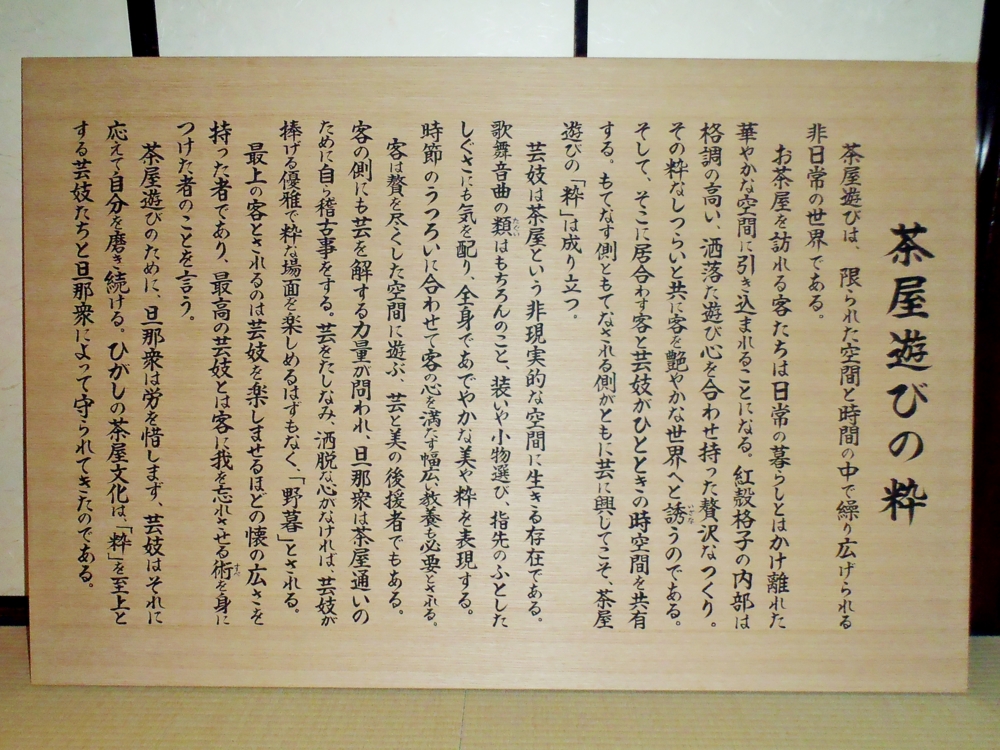 茶屋遊びの粋
茶屋遊びは、限られた空間と時間の中で繰り広げられる
非日常の世界である。
お茶屋を訪れる客たちは日常の暮らしとはかけ離れた
華やかな空間に引き込まれることになる。紅殻格子の内部は
格調の高い、洒落た遊び心を合わせ持った贅沢なつくり。
その粋なしつらいと共に客を艶やかな世界へと誘うのである。
そして、そこに居合わす客と芸妓がひとときの時空間を共有
する。もてなす側ともてなされる側がともに芸に興じてこそ、茶屋
遊びの「粋」は成り立つ。
芸妓は茶屋という非現実的な空間に生きる存在である。
歌舞音曲の類はもちろんのこと、装いや小物選び、指先のふとした
しぐさにも気を配り、全身であでやかな美や粋を表現する。
時節のうつろいに合わせて客の心を満たす幅広い教養も必要とされる。
客は贅を尽くした空間に遊ぶ、芸と美の後援者でもある。
客の側にも芸を解する力量が問われ、旦那衆は茶屋通いの
ために自ら稽古事をする。芸をたしなみ、洒脱な心がなければ、芸妓が
捧げる優雅で粋な場面を楽しめるはずもなく、「野暮」とされる。
最上の客とされるのは芸妓を楽しませるほどの懐の広さを
持った者であり、最高の芸妓とは客に我を忘れさせる術を身に
つけた者のことを言う。
茶屋遊びのために、旦那衆は労を惜しまず、芸妓はそれに
応えて自分を磨き続ける。ひがしの茶屋文化は、「粋」を至上と
する芸妓たちと旦那衆によって守られてきたのである。